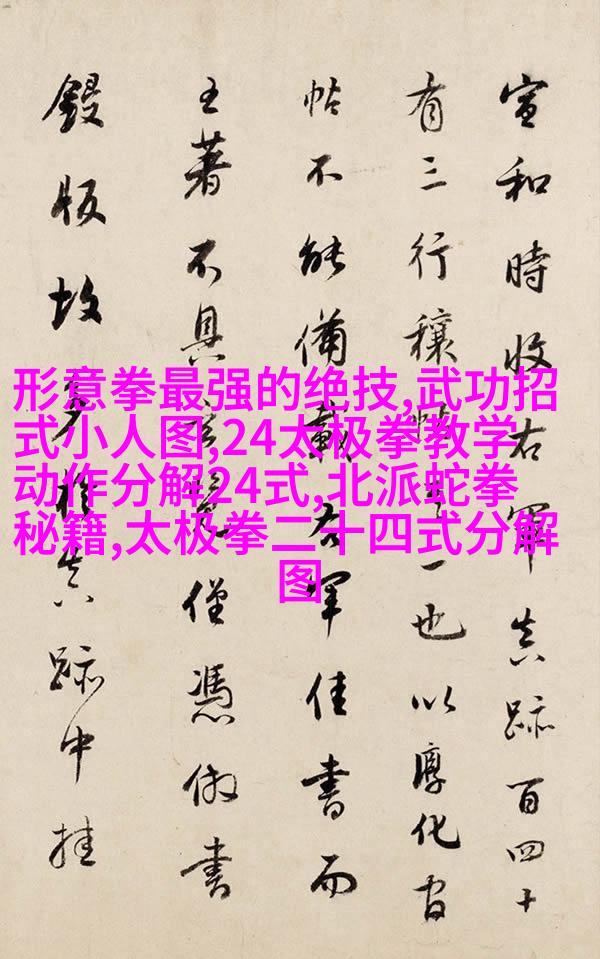 形意拳最强的绝技,武功招
式小人图,24太极拳教学
动作分解24式,北派蛇拳
秘籍,太极拳二十四式分解
图
宣和時收右軍真跡百四十
有三行穰帖其一也以淳化官
帖不能備載右軍佳書而
王著不具玄覽僅憑倣書
鋟版故多於真跡中挂